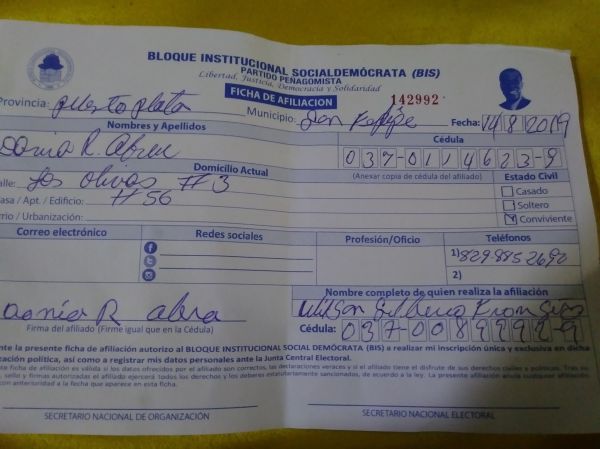 BLOQUE INSTITUCIONAL SOCIALDEMÓCRATA (BIS)
PARTIDO PEÑAGOMISTA
Libertad, Justicia, Democracia y Solidaridad
FICHA DE AFILIACION
142992
Provincia: puerto plata Municipio: San Felipe Fecha: 14/8/2019
Nombres y Apellidos
Cédula
Sonia R. Abreu
037-0114623-9
Domicilio Actual
(Anexar copia de cédula del afiliado)
Estado Civil
alle: Los olivos #3
Casado
asa / Apt. / Edificio: #56
Soltero
rrio / Urbanización:
Conviviente
Correo electrónico
Redes sociales
Profesión/Oficio
Teléfonos
1) 829 885 2692
2)
Nombre completo de quien realiza la afiliación
Sonia R
Wilson
Firma del afiliado (Firme igual que en la Cédula)
Cédula: 037-0089992-9
nte la presente ficha de afiliación autorizo al BLOQUE INSTITUCIONAL SOCIAL DEMÓCRATA (BIS) a realizar mi inscripción única y exclusiva en dicha
zación política, así como a registrar mis datos personales ante la Junta Central Electoral.
ta ficha de afiliación es válida si los datos ofrecidos por el afiliado son correctos, las declaraciones veraces y si el afiliado tiene el disfrute de sus derechos civiles y políticos.
, sello y firmas autorizadas el afiliado ejercerá todos los derechos y los deberes estatutariamente sancionados, de acuerdo a la ley. La presente afiliación anula cualquier afiliación
con anterioridad a la fecha que aparece en esta ficha.
SECRETARIO NACIONAL DE ORGANIZACIÓN
SECRETARIO NACIONAL ELECTORAL